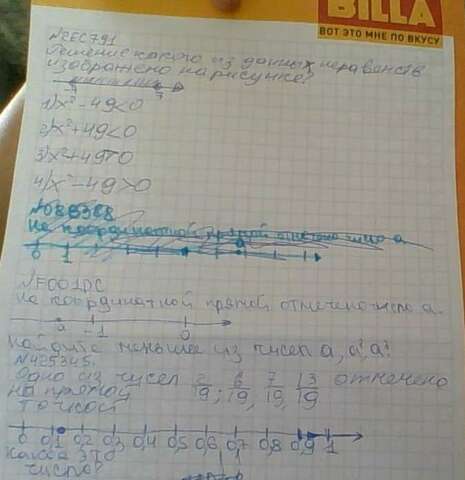 BILLA
ВОТ ЭТО МНЕ ПО ВКУСУ
№2EC791
Решение какого из данных неравенств
изображено на рисунке?
1) x² - 49 < 0
2) x² + 49 < 0
3) x² + 49 > 0
4) x² - 49 > 0
на координатной прямой отмечено число a
0 1 a
на координатной прямой отмечено число a.
a -1 0
найдите меньшее из чисел a, a², a³
№425345.
Одно из чисел 2/9; 6/19, 7/19, 13/19 отмечено
на прямой
точкой
0 0,1 0,2 0,3 0,4 0,5 0,6 0,7 0,8 0,9 1
Какое это
число?